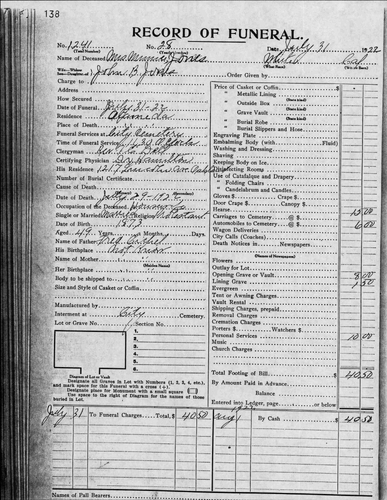 138
RECORD OF FUNERAL.
No. 1241 No. 28 Date July 31 1922
(Total Number) (Yearly Number)
Name of Deceased Mrs. Minnie Jones White Cal
(What Race) (Where Born)
Charge to John B. Jones Order Given by
Address
How Secured
Date of Funeral July 31-22
Residence Alameda
Place of Death
Funeral Services at City Cemetery
Time of Funeral Service
Clergyman Rev.
Certifying Physician Dr. Hamilton
His Residence
Number of Burial Certificate
Cause of Death
Date of Death July 29 1922
Occupation of the Deceased
Single or Married Married Religion Protestant
Date of Birth 1873
Aged 49 Years Months Days.
Name of Father Fred
His Birthplace Not Known
Name of Mother
Her Birthplace (Maiden Name)
Body to be shipped to
Size and Style of Casket or Coffin
Manufactured by
Interment at City Cemetery
Lot or Grave No. Section No.
1.
2.
3.
4.
5.
6.
Diagram of Lot or Vault
Designate all Graves in Lot with Numbers (1, 2, 3, 4, etc.),
and mark space for this Funeral with a cross (+).
Designate place for Monument with a small square
Use space to the right of Diagram for the names of those
buried in Lot.
Price of Casket or Coffin
" Metallic Lining
(State kind)
" Outside Box
(State kind)
" Grave Vault
(State kind)
" Burial Robe
(State kind)
" Burial Slippers and Hose
Engraving Plate
Embalming Body (with Fluid)
Washing and Dressing
Shaving
Keeping Body on Ice
Disinfecting Rooms
Use of Catafalque and Drapery
" Folding Chairs
" Candelabrum and Candles
Gloves $ Crape $
Door Crape $ Canopy $
Hearse 15.00
Carriages to Cemetery @ $
Automobiles to Cemetery @ $ 6.00
Wagon Deliveries @ $
City Calls (Coaches) @ $
Death Notices in Newspapers
(Names of Newspapers)
Flowers
Outlay for Lot
Opening Grave or Vault 8.00
Lining Grave 1.50
Evergreen
Tent or Awning Charges
Vault Rental
Shipping Charges, prepaid
Removal Charges
Cremation Charges
Porters $ Watchers $
Personal Services 10.00
Music
Church Charges
Total Footing of Bill 40.50
By Amount Paid in Advance
Balance
Entered into Ledger, page or below
July 31 To Funeral Charges, Total, $ 40.50 1922 Aug 1 By Cash 40.50
Names of Pall Bearers